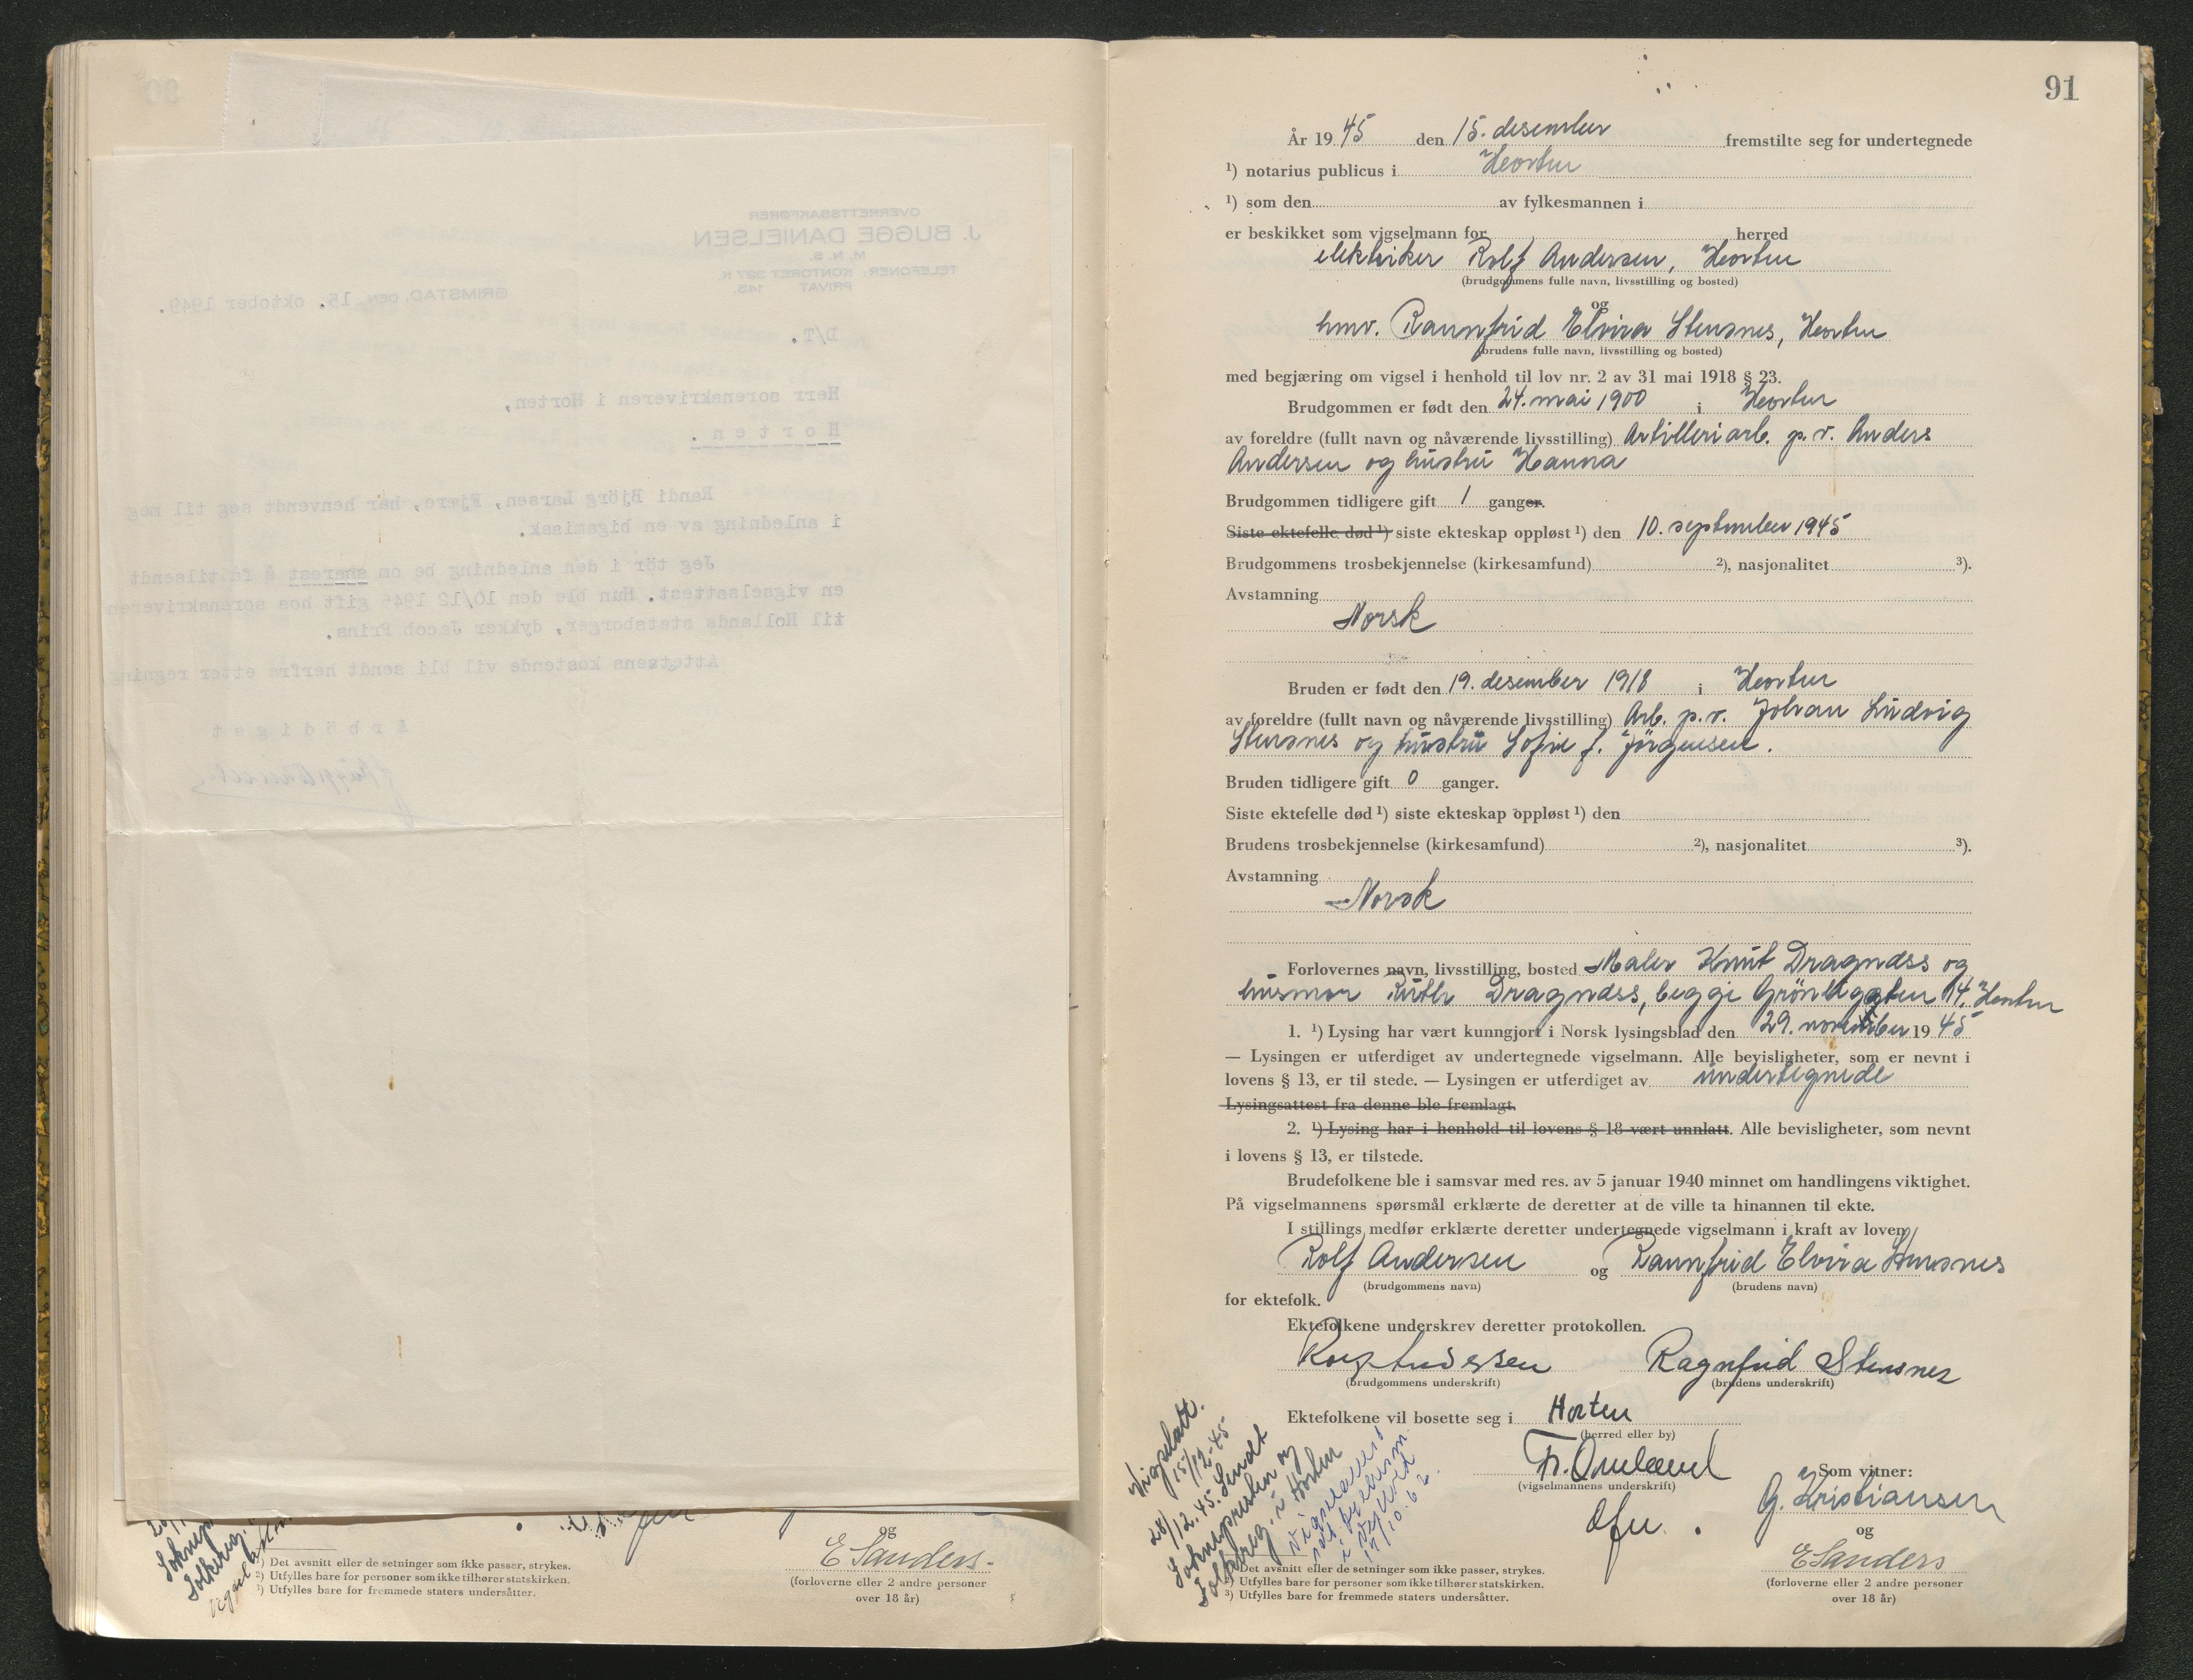 OVERRETTSSAKFØRER
J. BUGGE DANIELSEN
M. N. S.
TELEFONER: KONTORET 327 K.
PRIVAT 145.
GRIMSTAD, DEN 15. oktober 1949.
D/T.
Herr sorenskriveren i Horten,
Horten.
Randi Björg Larsen, Fjære, har henvendt seg til meg
i anledning av en bigamisak.
Jeg tör i den anledning be om snarest å få tilsendt
en vigselsattest. Hun ble den 10/12 1945 gift hos sorenskriveren
til Hollands statsborger, dykker Jacob Prins.
Attestens kostende vil bli sendt herfra etter regning
Arbödigst
og
E Sanders
(forloverne eller 2 andre personer
over 18 år)
¹) Det avsnitt eller de setninger som ikke passer, strykes.
²) Utfylles bare for personer som ikke tilhører statskirken.
³) Utfylles bare for fremmede staters undersåtter.
91
År 1945 den 15. desember fremstilte seg for undertegnede
¹) notarius publicus i Horten
¹) som den av fylkesmannen i
er beskikket som vigselmann for herred
elektriker Rolf Andersen, Horten
(brudgommens fulle navn, livsstilling og bosted)
og
hmv. Rannfrid Elvira Stensnes, Horten
(brudens fulle navn, livsstilling og bosted)
med begjæring om vigsel i henhold til lov nr. 2 av 31 mai 1918 § 23.
Brudgommen er født den 24. mai 1900 i Horten
av foreldre (fullt navn og nåværende livsstilling) Artilleriarb. p.v. Anders
Andersen og hustru Hanna
Brudgommen tidligere gift 1 ganger.
Siste ektefelle død ¹) siste ekteskap oppløst ¹) den 10. september 1945
Brudgommens trosbekjennelse (kirkesamfund) ²), nasjonalitet ³).
Avstamning
Norsk
Bruden er født den 19. desember 1918 i Horten
av foreldre (fullt navn og nåværende livsstilling) Arb. p.v. Johan Ludvig
Stensnes og hustru Sofie f. Jörgensen.
Bruden tidligere gift 0 ganger.
Siste ektefelle død ¹) siste ekteskap oppløst ¹) den
Brudens trosbekjennelse (kirkesamfund) ²), nasjonalitet ³).
Avstamning
Norsk
Forlovernes navn, livsstilling, bosted Maler Knut Dragnæss og
husmor Ruth Dragnæss, begge Grönligaten 14, Horten
1. ¹) Lysing har vært kunngjort i Norsk lysingsblad den 29. november 1945
— Lysingen er utferdiget av undertegnede vigselmann. Alle bevisligheter, som er nevnt i
lovens § 13, er til stede. — Lysingen er utferdiget av undertegnede
Lysingsattest fra denne ble fremlagt.
2. ¹) Lysing har i henhold til lovens § 18 vært unnlatt. Alle bevisligheter, som nevnt
i lovens § 13, er tilstede.
Brudefolkene ble i samsvar med res. av 5 januar 1940 minnet om handlingens viktighet.
På vigselmannens spørsmål erklærte de deretter at de ville ta hinannen til ekte.
I stillings medfør erklærte deretter undertegnede vigselmann i kraft av loven
Rolf Andersen og Rannfrid Elvira Stensnes
(brudgommens navn) (brudens navn)
for ektefolk.
Ektefolkene underskrev deretter protokollen.
Rolf Andersen Ragnfrid Stensnes
(brudgommens underskrift) (brudens underskrift)
Ektefolkene vil bosette seg i Horten
(herred eller by)
Fr. Omland
(vigselmannens underskrift)
Som vitner:
G. Kristiansen
og
E Sanders
(forloverne eller 2 andre personer
over 18 år)
Vigselatt.
15/12-45
28/12.45. Sendt
Soknepresten og
Folkereg. i Horten
¹) Det avsnitt eller de setninger som ikke passer, strykes.
²) Utfylles bare for personer som ikke tilhører statskirken.
³) Utfylles bare for fremmede staters undersåtter.